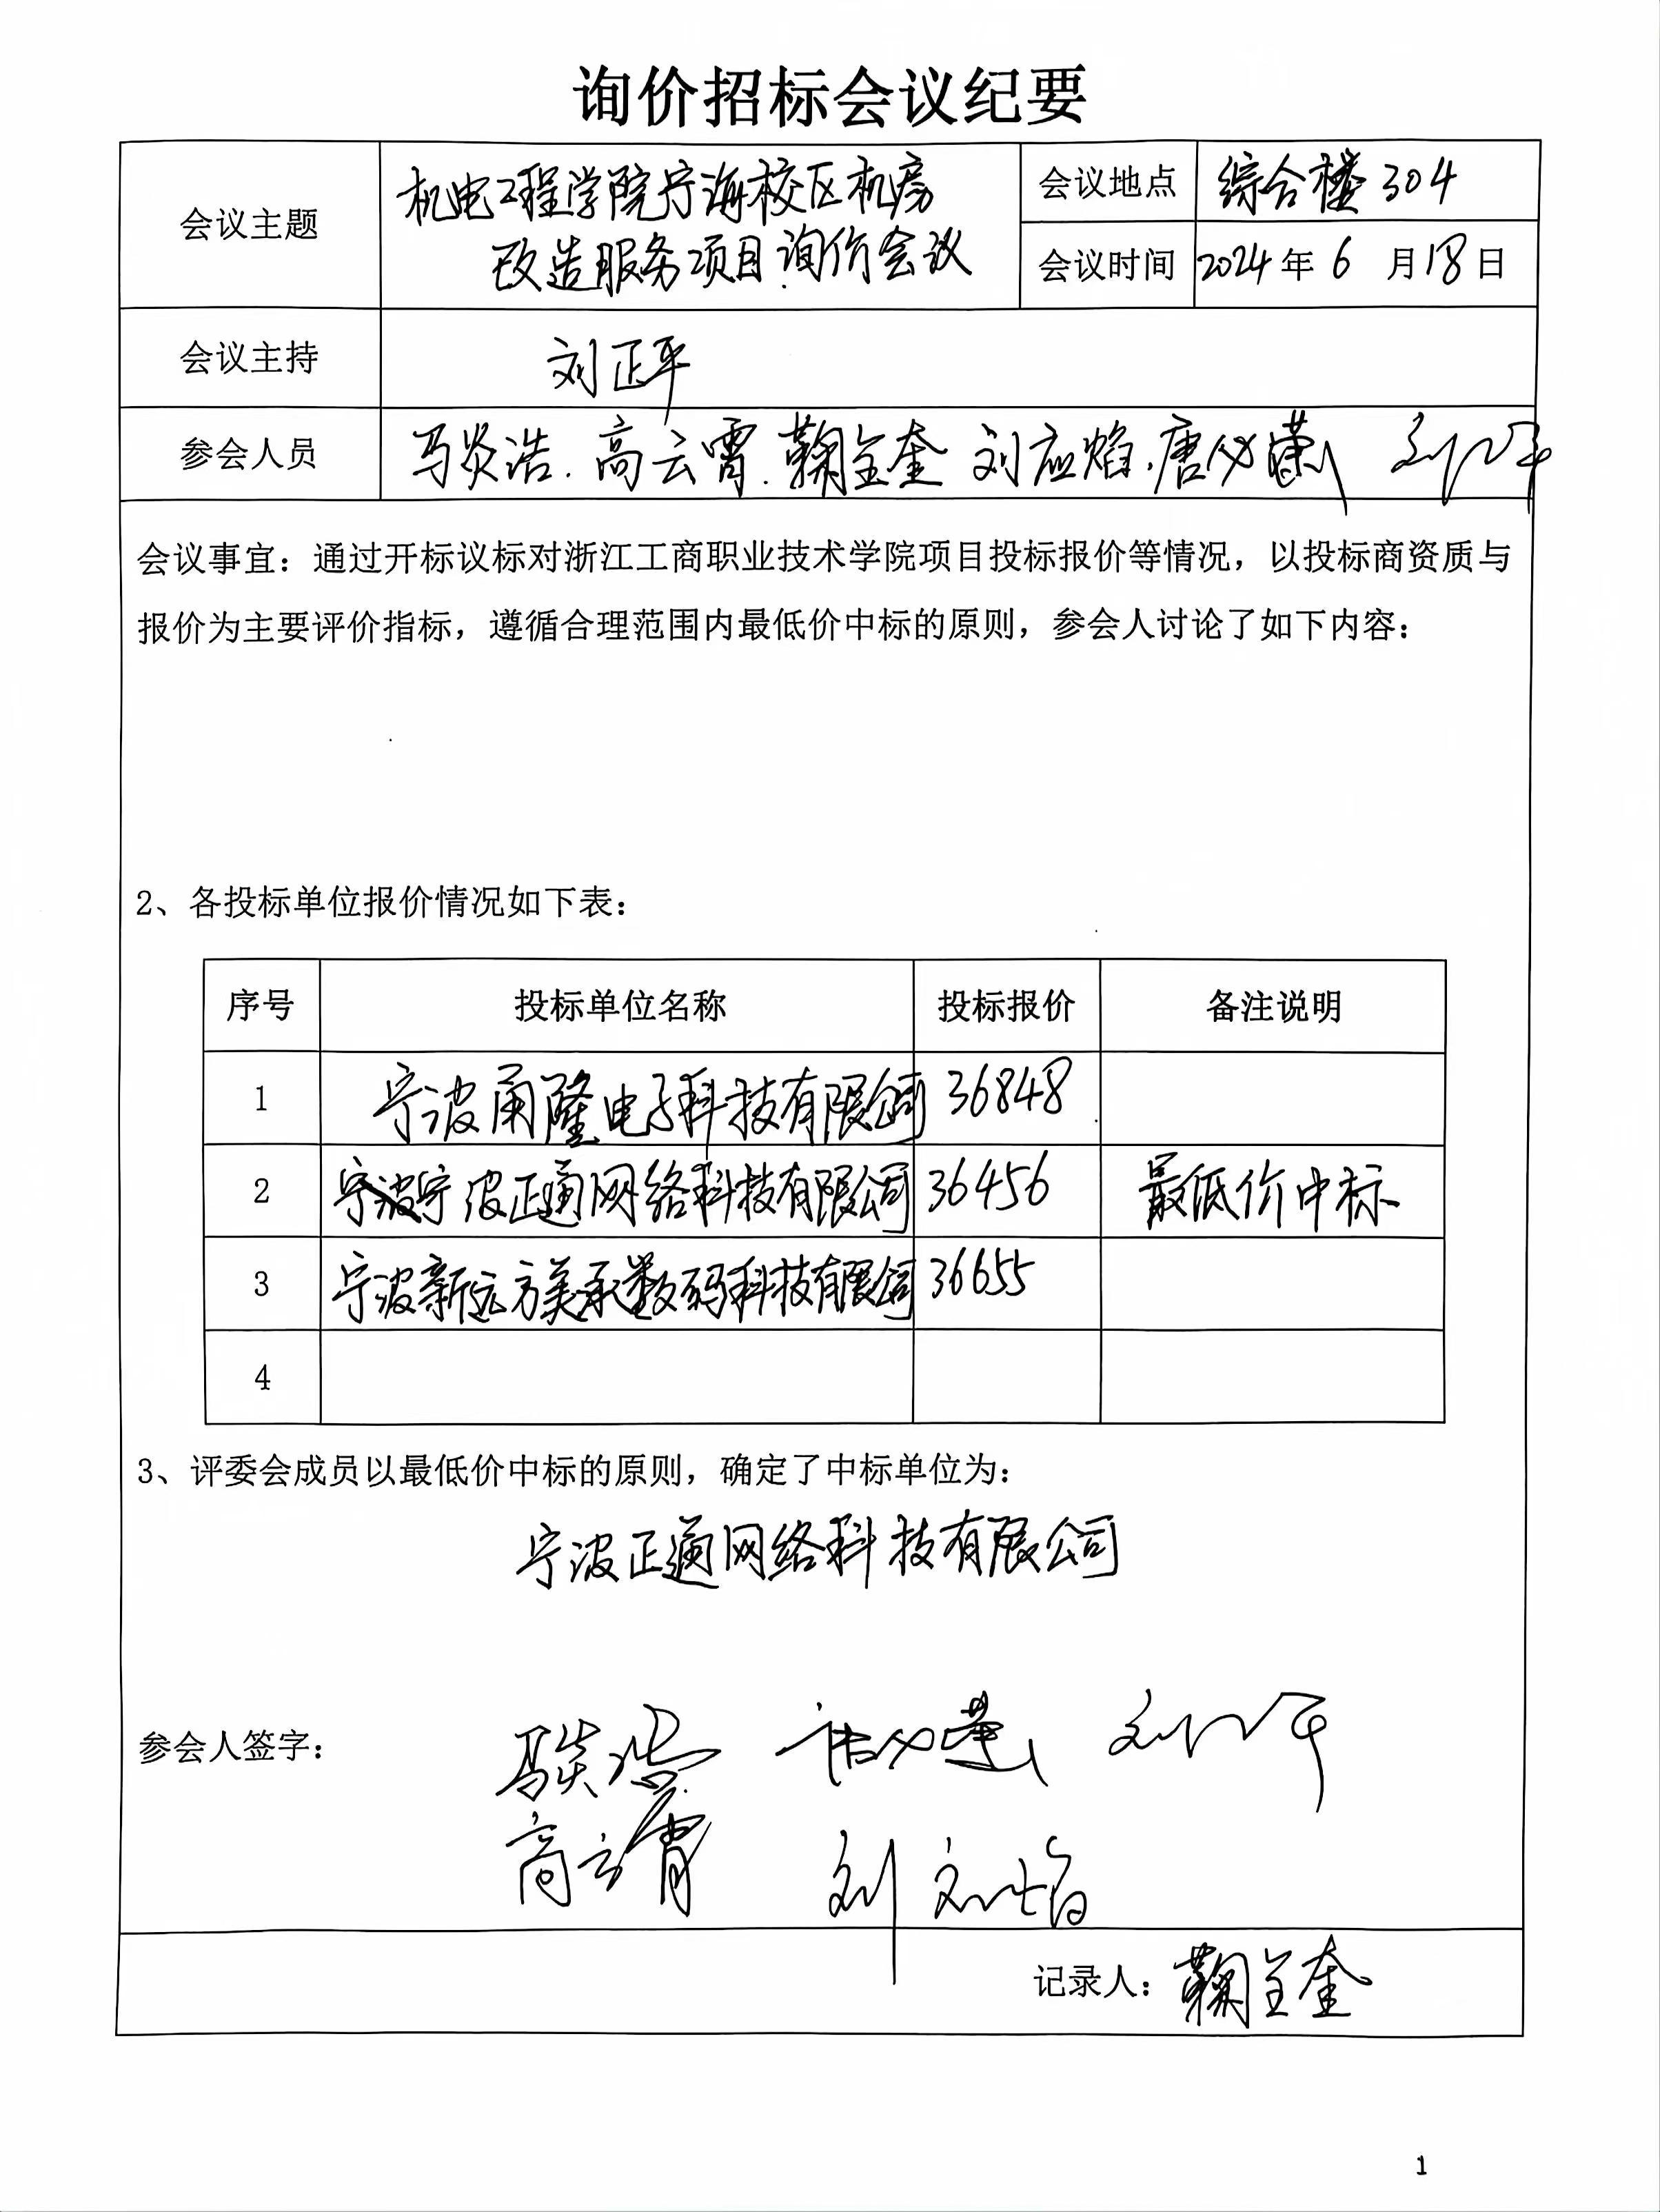 询价招标会议纪要
会议主题 机电工程学院宁海校区机房 会议地点 综合楼304
改造服务项目询价会议 会议时间 2024年6月18日
会议主持 刘正平
参会人员 马炎浩.高云霄.鞠全奎 刘应焰.唐必
会议事宜：通过开标议标对浙江工商职业技术学院项目投标报价等情况，以投标商资质与
报价为主要评价指标，遵循合理范围内最低价中标的原则，参会人讨论了如下内容：
2、各投标单位报价情况如下表：
序号 投标单位名称 投标报价 备注说明
1 宁波甬隆电子科技有限公司 36848
2 宁波正通网络科技有限公司 36456 最低价中标
3 宁波新远方美承数码科技有限公司 36655
4
3、评委会成员以最低价中标的原则，确定了中标单位为：
宁波正通网络科技有限公司
参会人签字： 马炎浩
高云霄 刘
记录人：鞠全奎
1